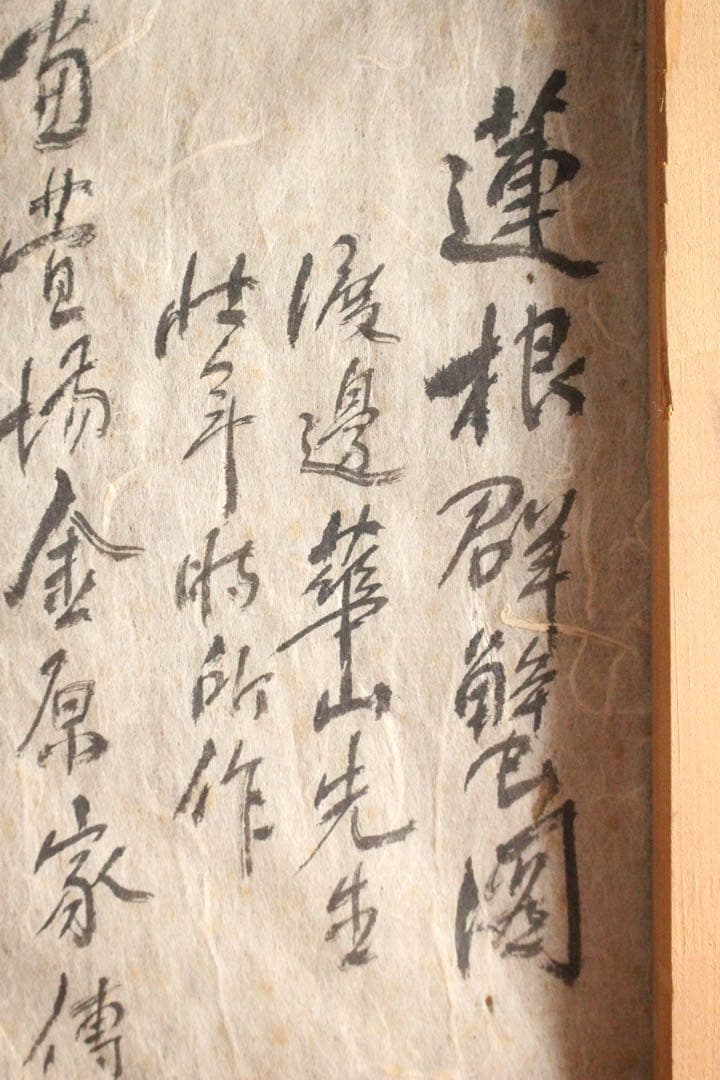 蓮根群蟹図
渡邊華山先生
壮年時所作
當萱場金原家傳